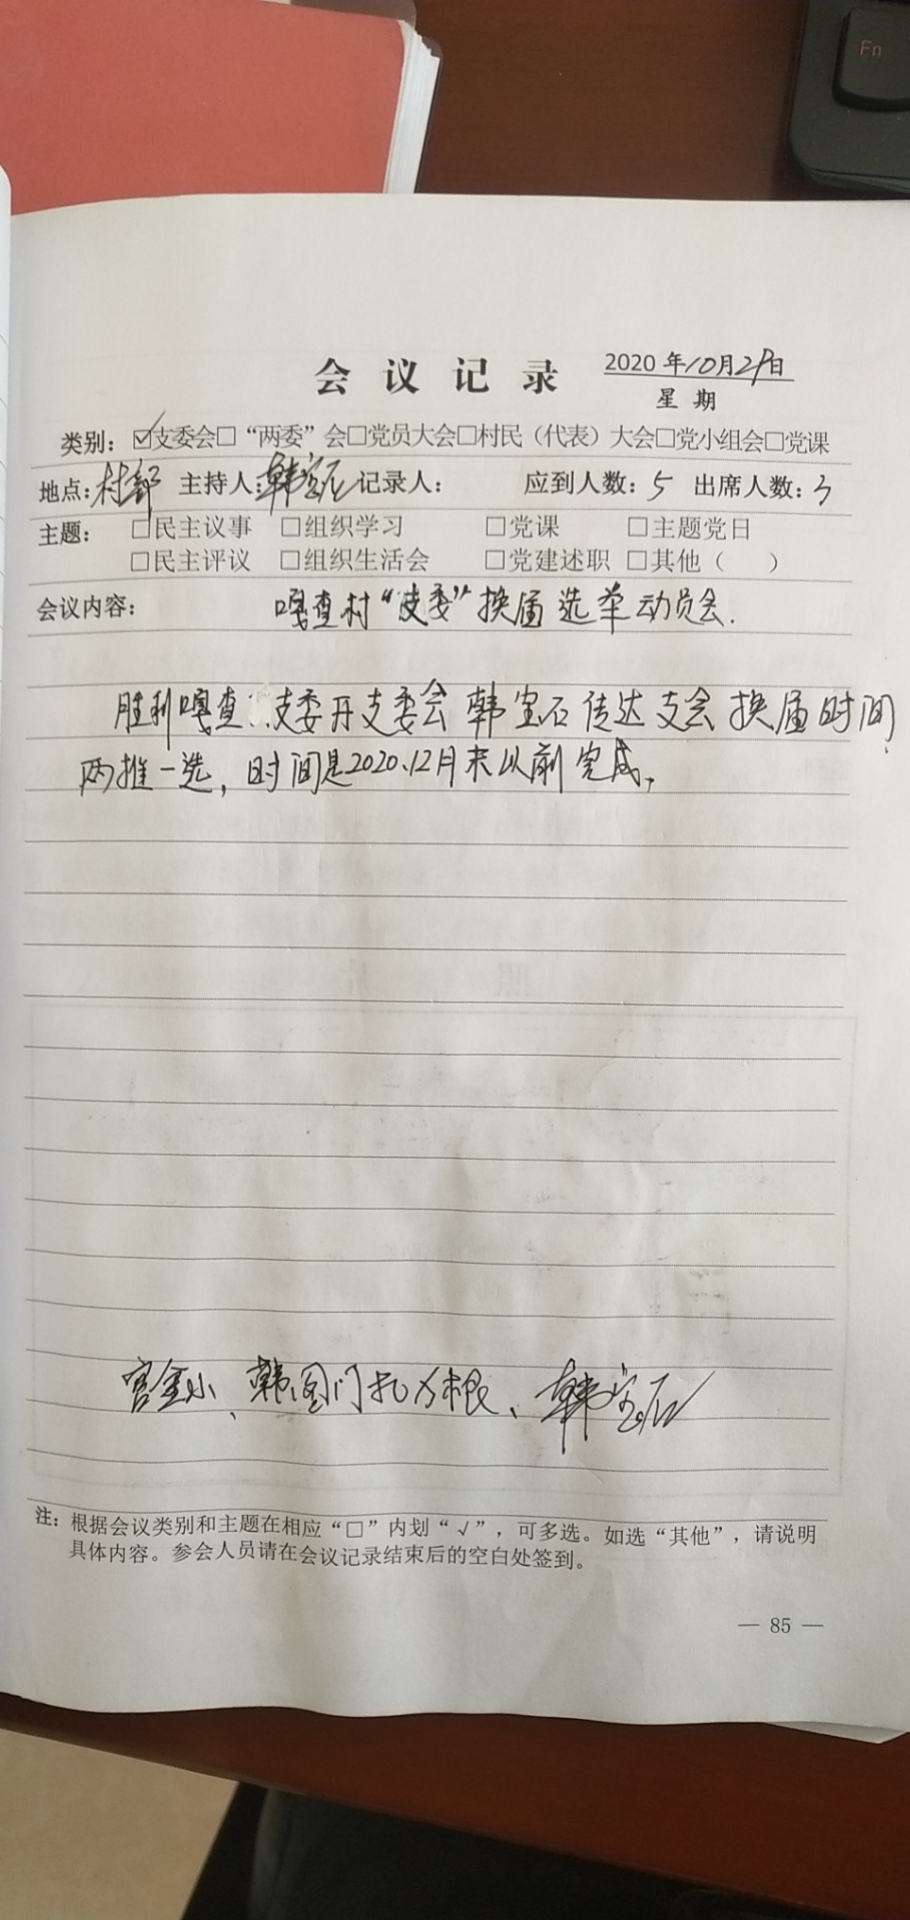 Fn
会议记录 2020年10月29日
星期
类别：☑支委会□“两委”会□党员大会□村民（代表）大会□党小组会□党课
地点：村部 主持人：韩宝石 记录人： 应到人数：5 出席人数：3
主题： □民主议事 □组织学习 □党课 □主题党日
□民主评议 □组织生活会 □党建述职 □其他（ ）
会议内容： 嘎查村“支委”换届选举动员会.
胜利嘎查 支委开支委会 韩宝石传达支会换届时间
两推一选，时间是2020.12月末以前完成，
宫金小、韩图门扎力根、韩宝石
注：根据会议类别和主题在相应“□”内划“√”，可多选。如选“其他”，请说明
具体内容。参会人员请在会议记录结束后的空白处签到。
— 85 —